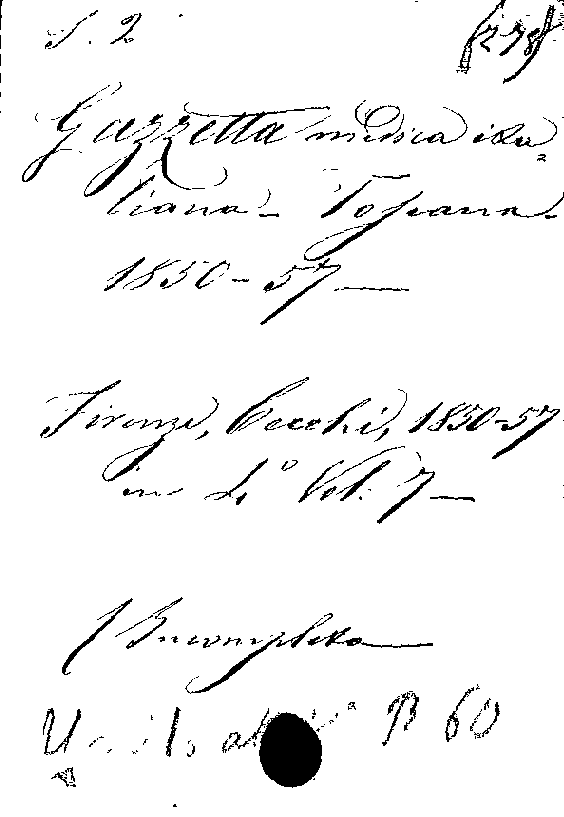 S. 2
Gazzetta medica ita=
liana - Toscana -
1850-57 —
Firenze, Cecchi, 1850-57
in 4° Vol. 7 —
(Incompleta —
B 60